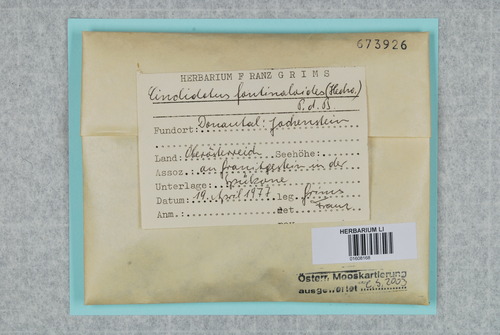 673926
HERBARIUM FRANZ GRIMS
Cinclidotus fontinaloides (Hedw.)
P.d.B
Fundort: Donautal: Jochenstein
Land: Oberösterreich Seehöhe:
Assoz. an Granitgestein in der
Unterlage: Spülzone
Datum: 19. April 1977 leg. Grims
Anm.: det. Franz
HERBARIUM LI
01608168
Österr. Mooskartierung
ausgewertet 2003